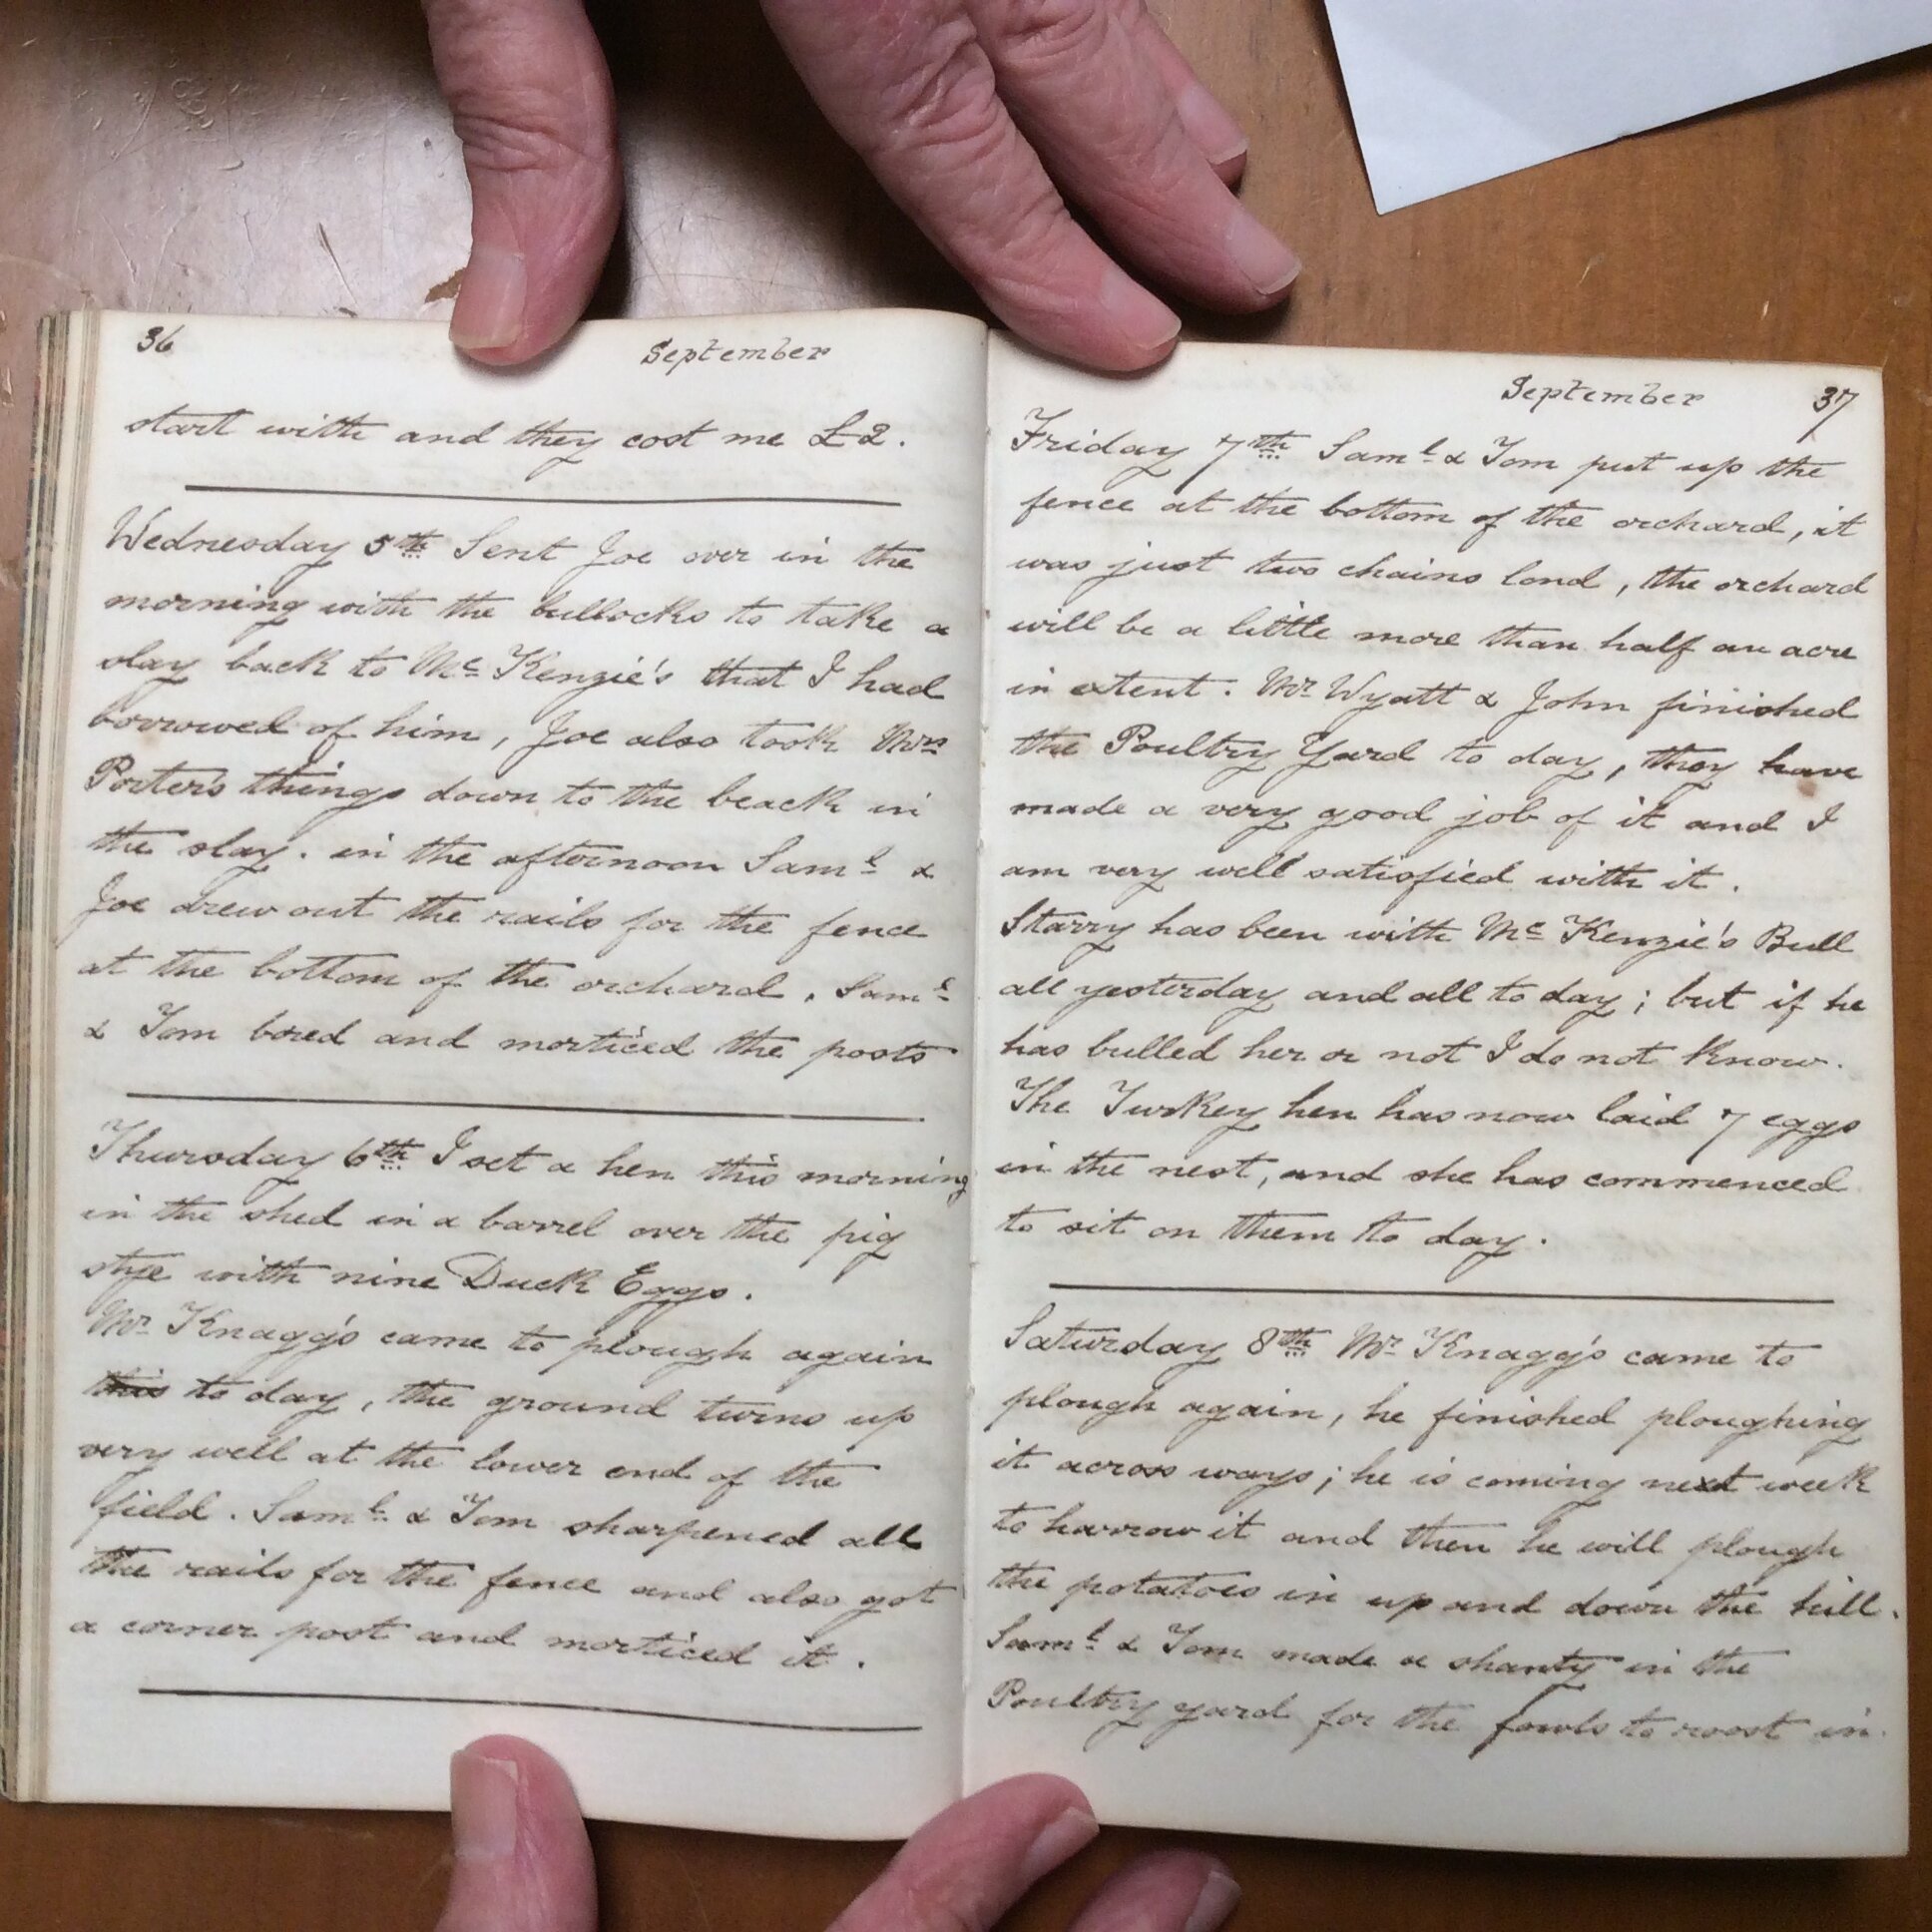 36
September
start with and they cost me £2.
Wednesday 5th Sent Joe over in the
morning with the bullocks to take a
slay back to Mc Kenzie's that I had
borrowed of him, Joe also took Mrs
Porter's things down to the beach in
the slay. in the afternoon Saml &
Joe drew out the rails for the fence
at the bottom of the orchard. Saml
& Tom bored and morticed the posts
Thursday 6th I set a hen this morning
in the shed in a barrel over the pig
stye with nine Duck Eggs.
Mr Knaggs came to plough again
this to day, the ground turns up
very well at the lower end of the
field. Saml & Tom sharpened all
the rails for the fence and also got
a corner post and morticed it.
September
37
Friday 7th Saml & Tom put up the
fence at the bottom of the orchard, it
was just two chains lond, the orchard
will be a little more than half an acre
in extent. Mr Wyatt & John finished
the Poultry Yard to day, they have
made a very good job of it and I
am very well satisfied with it.
Starry has been with Mc Kenzie's Bull
all yesterday and all to day; but if he
has bulled her or not I do not know.
The Turkey hen has now laid 7 eggs
in the nest, and she has commenced
to sit on them to day.
Saturday 8th Mr Knaggs came to
plough again, he finished ploughing
it across ways; he is coming next week
to harrow it and then he will plough
the potatoes in up and down the hill.
Saml & Tom made a shanty in the
Poultry yard for the fowls to roost in.